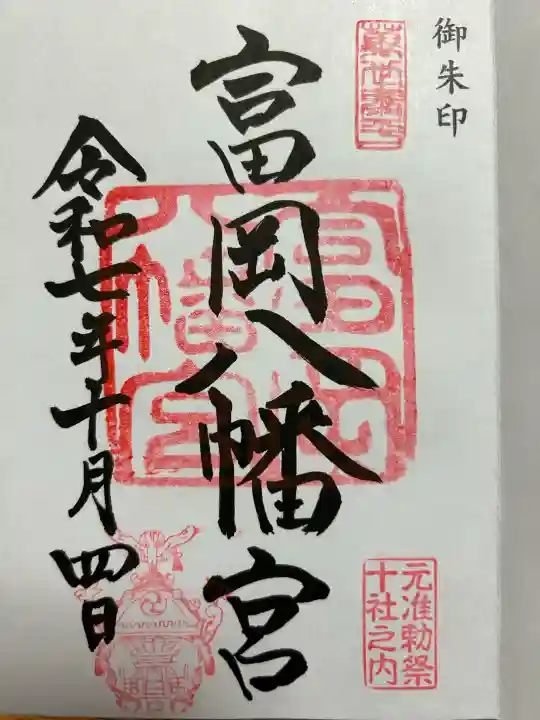 御朱印
富岡八幡宮
元准勅祭
十社之内
令和七年十月四日